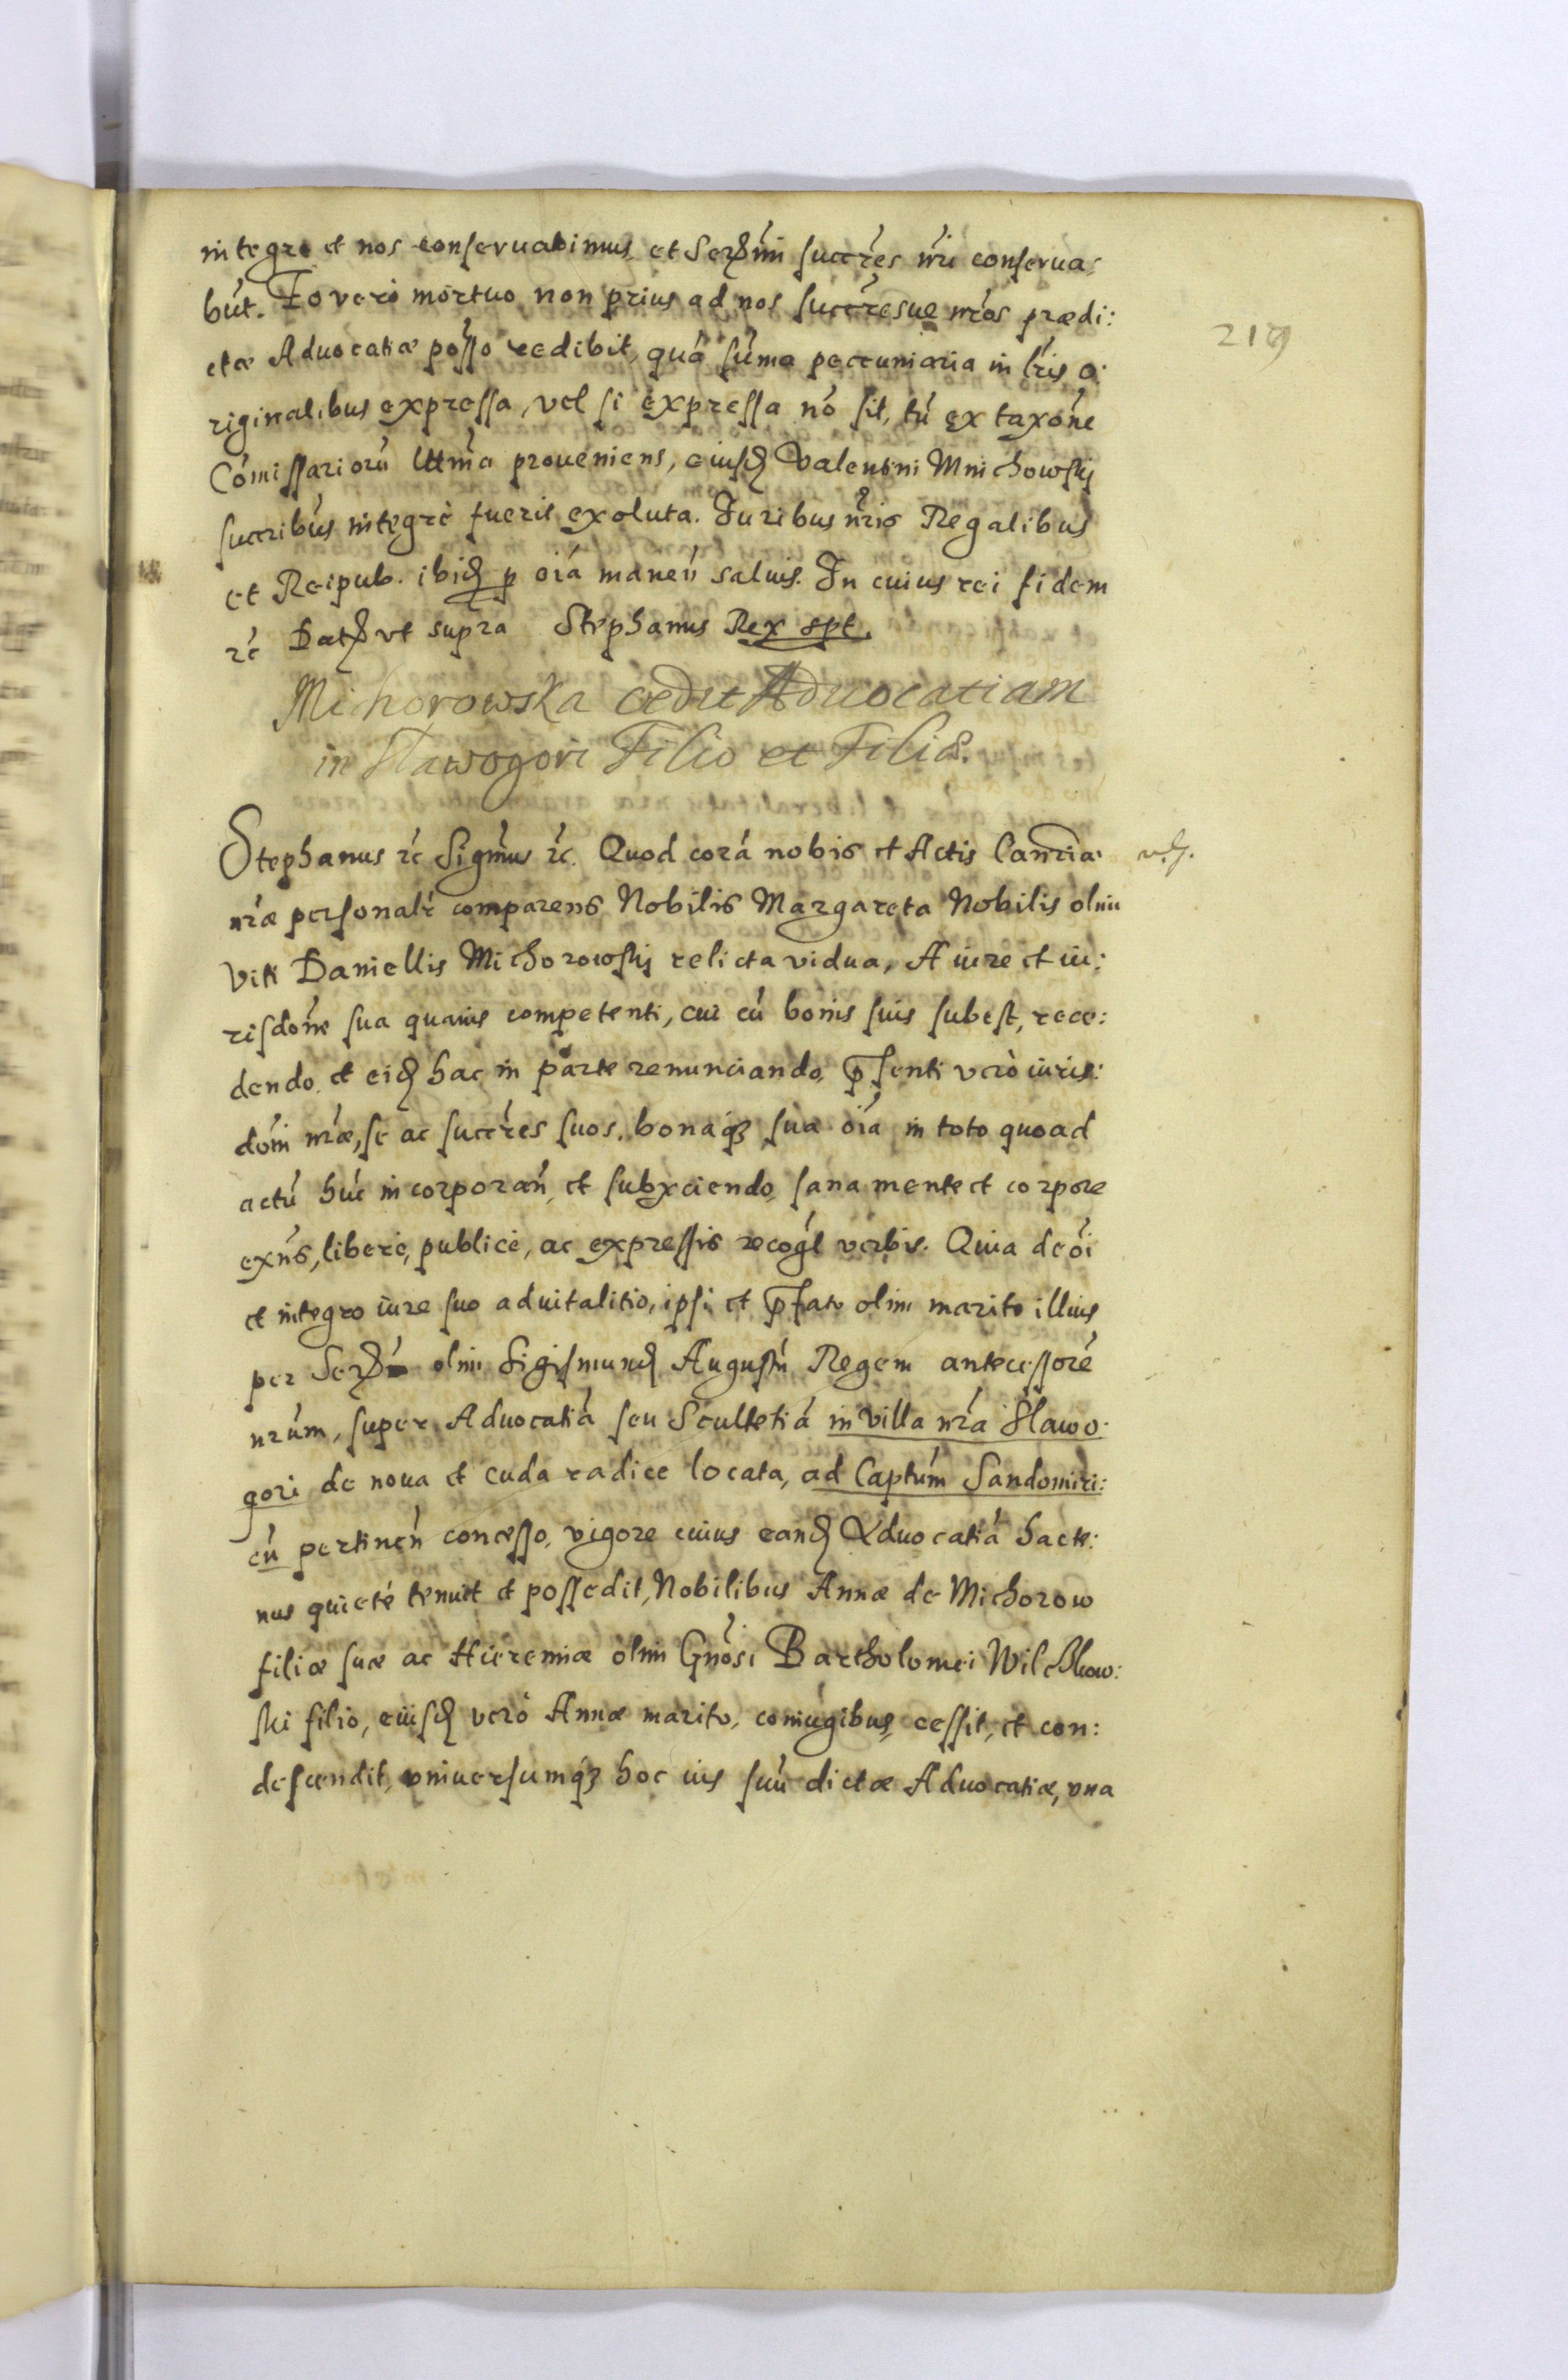 integro et nos conseruabimus, et Serꝫmi succres nri conserua:
bút. Eo vero mortuo non prius ad nos succresue nros prædi:
ctæ Aduocatiæ posso redibit, quá súma peccuniaria in lris o:
riginalibus expressa, vel si expressa nó sit, tú ex taxóne
Cómissariorú lttma proueniens, eiusꝺ Valentini Mnichowskj
succribus integrè fuerit exoluta. Iuribus nris Regalibus
et Reipub. ibiꝺ ꝑ oía maneń saluis. In cuius rei fidem
rc Datꝫ vt supra Stephanus Rex spt.
Michorowska cedit Aduocatiam
in Slawogori Filio et Filiæ.
Stephanus rc Sigmus rc. Quod corá nobis et Actis Cancria:
219
nræ personalr comparens Nobilis Margareta Nobilis olim
Viti Daniellis Michorowskj relicta vidua, A iure et iu:
risdóne sua quauis competenti, cui cú bonis suis subest, rece:
dendo, et eiꝺ hac in parte renunciando, ꝑsenti verò iuris:
dóni nræ, se ac succres suos, bonaqꝫ sua oía in toto quoad
actú húc incorporań, et subyciendo, sana mente et corpore
exńs, liberè, publicè, ac expressis recógl verbis. Quia de oí
et integro iure suo aduitalitio, ipsi et ꝑfato olim marito illius
per Serꝫm olim Sigismunꝺ Augustú Regem antecessoré
nrum, super Aduocatiá seu Scultetiá in villa nra Slawo:
gori de noua et cuda radice locata, ad Captúm Sandomiri:
eń pertineń concesso, vigore cuius eanꝺ Aduocatiá hacte:
nus quietè tenuit et possedit, Nobilibus Annæ de Michorow
filiæ suæ ac Hieremiæ olim Gnósi Bartholomei Wilchkow:
ski filio, eiusꝺ verò Annæ marito, coniugibus, cessit, et con:
descendit, vniuersumqꝫ hoc ius suú dictæ Aduocatiæ, vna